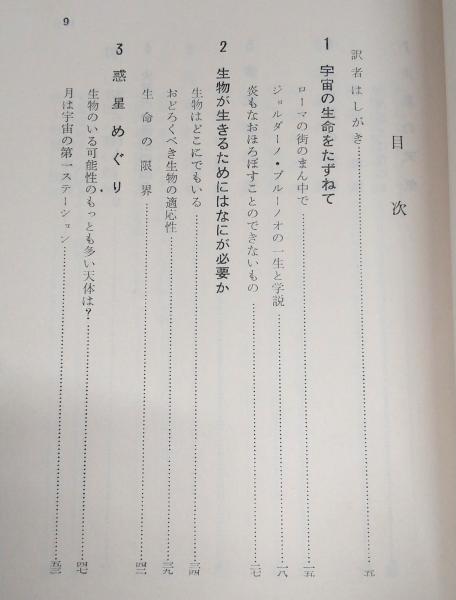 目次
訳者はしがき……五
1 宇宙の生命をたずねて
ローマの街のまん中で……一五
ジョルダーノ・ブルーノオの一生と学説……一八
炎もなおほろぼすことのできないもの……二七
2 生物が生きるためにはなにが必要か
生物はどこにでもいる……三四
おどろくべき生物の適応性……三九
生命の限界……四二
3 惑星めぐり
生物のいる可能性のもっとも多い天体は?……四七
月は宇宙の第一ステーション……五三
9